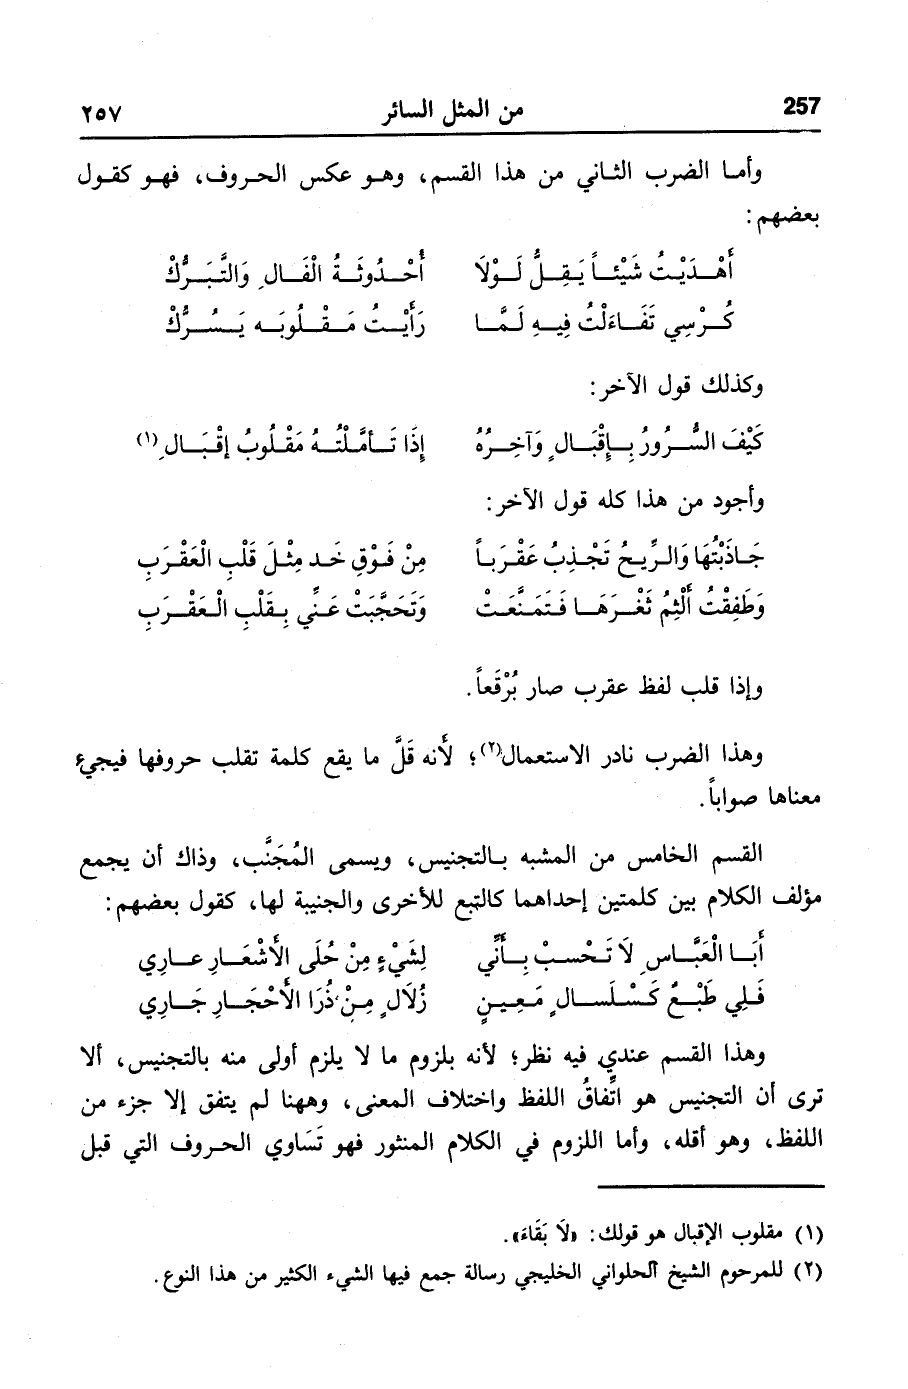 257 من المثل السائر ٢٥٧
وأما الضرب الثاني من هذا القسم، وهو عكس الحروف، فهو كقول
بعضهم:
أَهْدَيْتُ شَيْئاً يَقِلُّ لَوْلَا أُحْدُوثَةُ الْفَالِ وَالتَّبَرُّكْ
كُرْسِي تَفَاءَلْتُ فِيهِ لَمَّا رَأَيْتُ مَقْلُوبَه يَسُرُّكْ
وكذلك قول الآخر:
كَيْفَ السُّرُورُ بِإِقْبَالٍ وَآخِرُهُ إِذَا تَأمَّلْتَهُ مَقْلُوبُ إقْبَالِ(١)
وأجود من هذا كله قول الآخر:
جَاذَبْتُهَا وَالرِّيحُ تَجْذِبُ عَقْرَباً مِنْ فَوْقِ خَد مِثْلَ قَلْبِ الْعَقْرَبِ
وَطَفِقْتُ أَلْثِمُ ثَغْرَهَا فَتَمَنَّعَتْ وَتَحَجَّبَتْ عَنِّي بِقَلْبِ الْعَقْرَبِ
وإذا قلب لفظ عقرب صار بُرْقَعاً.
وهذا الضرب نادر الاستعمال(٢)؛ لأَنه قَلَّ ما يقع كلمة تقلب حروفها فيجيء
معناها صواباً.
القسم الخامس من المشبه بالتجنيس، ويسمى المُجَنَّب، وذاك أن يجمع
مؤلف الكلام بين كلمتين إحداهما كالتبع للأخرى والجنيبة لها، كقول بعضهم:
أَبَا الْعَبَّاسِ لَا تَحْسِبْ بِأَنِّي لِشَيْءٍ مِنْ حُلَى الأَشْعَارِ عارِي
فَلِي طَبْعٌ كَسَلْسَالٍ مَعِينٍ زُلَالٍ مِنْ ذُرَا الأَحْجَارِ جَارِي
وهذا القسم عندي فيه نظر؛ لأنه بلزوم ما لا يلزم أولى منه بالتجنيس، ألا
ترى أن التجنيس هو اتِّفاقُ اللفظ واختلاف المعنى، وههنا لم يتفق إلا جزء من
اللفظ، وهو أقله، وأما اللزوم في الكلام المنثور فهو تَسَاوي الحروف التي قبل
(١) مقلوب الإقبال هو قولك: «لَا بَقَاءَ».
(٢) للمرحوم الشيخ الحلواني الخليجي رسالة جمع فيها الشيء الكثير من هذا النوع.